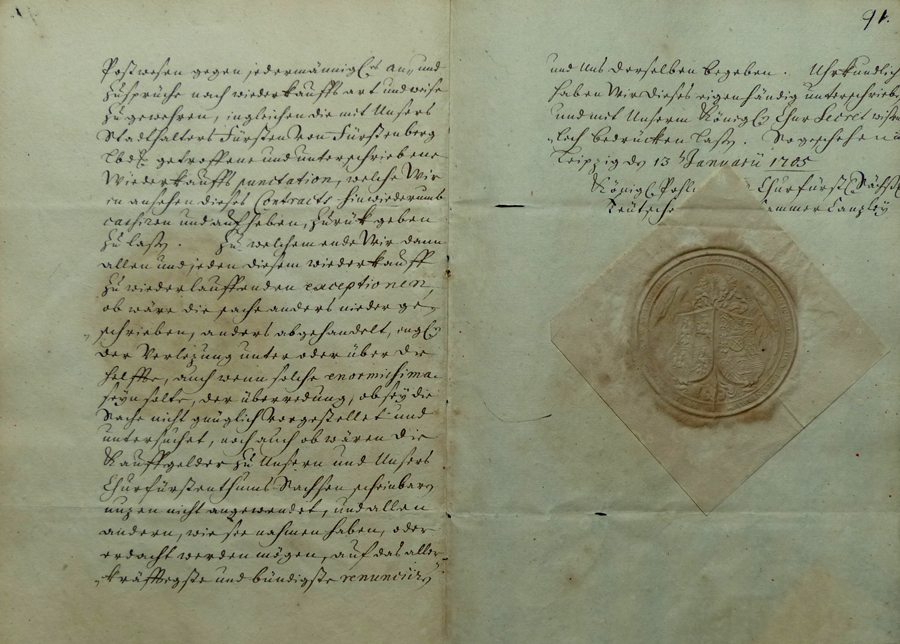 Postwesen gegen jedermänniglich an- und
Zusprüche nach wiederkauffs art und weise
zu gewehren, ingleichen die mit Unsers
Stadthalters Fürsten von Fürstenberg
Lbd getroffene und unterschriebene
Wiederkauffs punctation, welche Wir
in ansehen dieses Contracts hinwiederumb
cassiren und aufheben, zurück geben
zu laßen. Zu welchem ende Wir dann
allen und jeden diesem wiederkauff
zu wiederlauffenden exceptionen,
ob wäre die sache anders nieder ge-
schrieben, anders abgehandelt, ingl.
der Verlezung unter oder über die
helffte, auch wenn solche enormissima
seyn solte, der überredung, ob sey die
Sache nicht gnüglich vorgestellet und
untersuchet, noch auch ob wären die
Kauffgelder zu Unsern und Unsers
Churfürstenthums Sachsen scheinbarn
nuzen nicht angewendet, und allen
andern, wie sie nahmen haben, oder
erdacht werden mögen, auf das aller-
kräfftigste und bündigste renunciiren
91.
und Uns derselben begeben. Uhrkundlich
haben Wir dieses eigenhändig unterschrieb
und mit Unserm Königl. Chur Secret
bedrucken laßen. So geschehen
Leipzig den 13 Januarii 1705
Königl. Pohl. Churfürstl. Sächß.
Teutsche Cammer Canzley